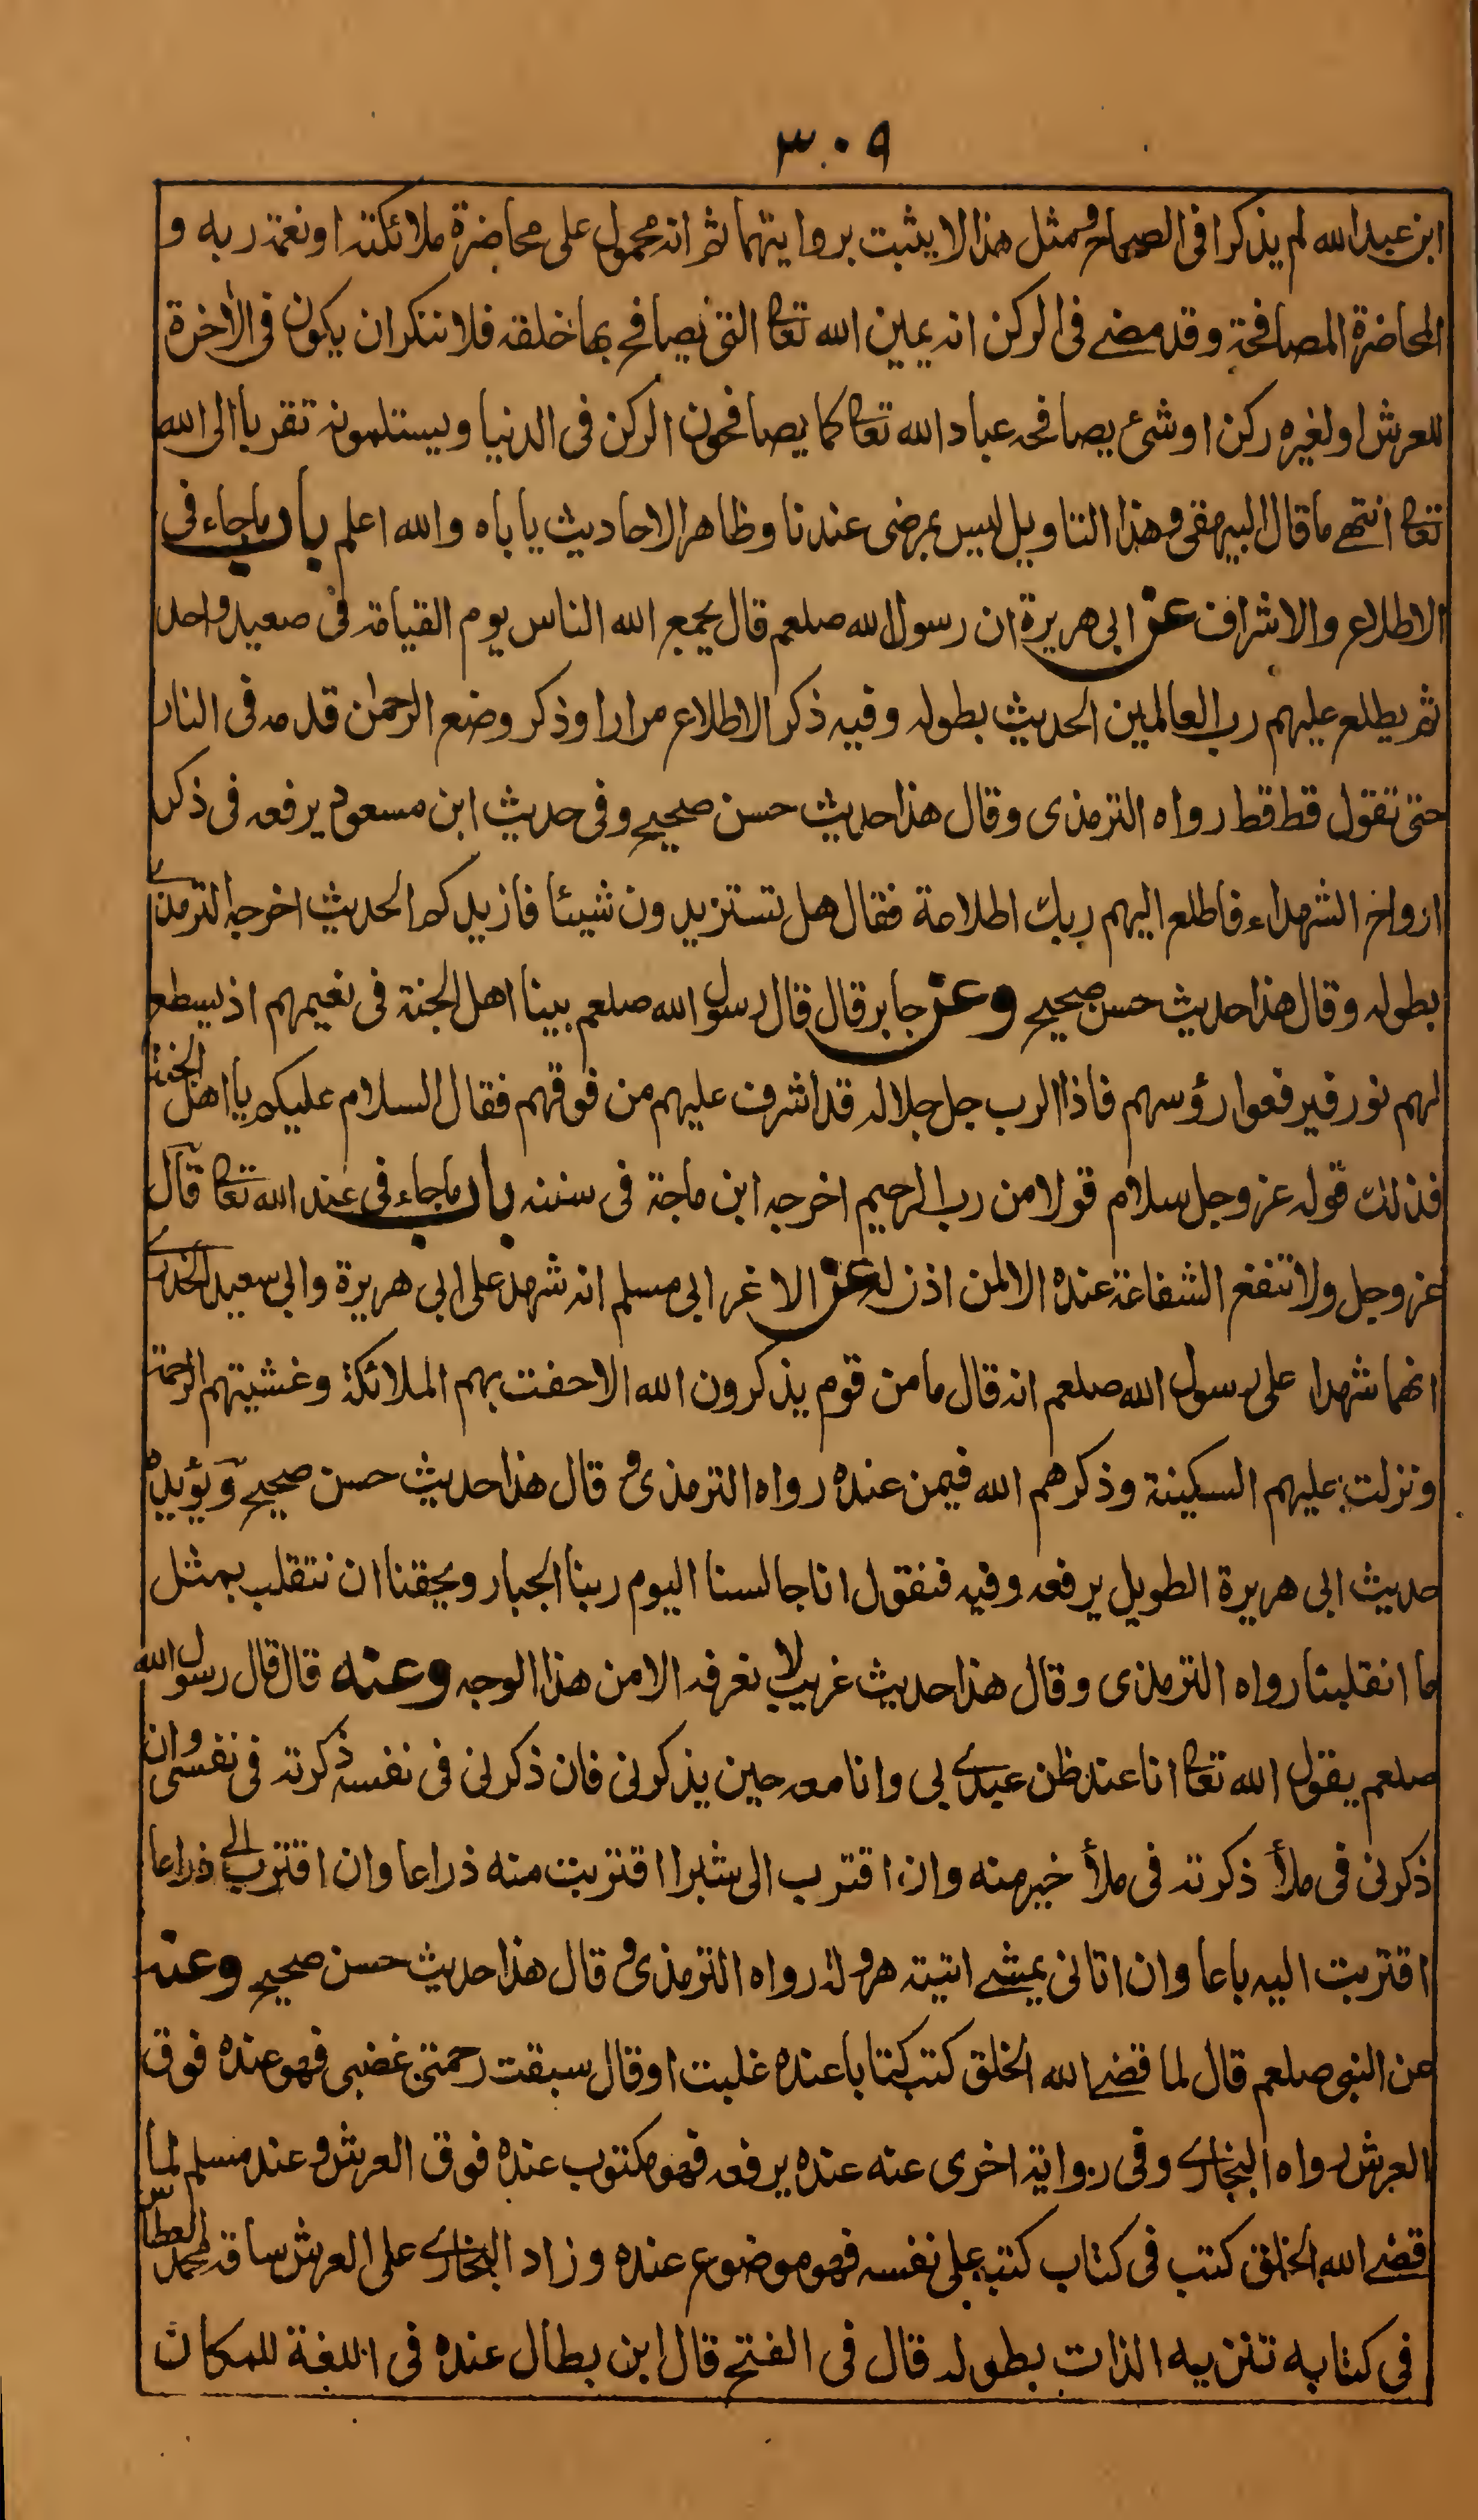 ٣٠٩
ابن عبد الله لم يذكرا فى الصحاح ومثل هذا لا يثبت بروايتهما ثم انه محمول على محاضرة ملائكته او نعمة ربه و
المحاضرة المصافحة وقد مضے فى الركن انه يمين الله تعالى التى يصافح بها خلقه فلا ننكر ان يكون فى الأخرة
للعرش او لغيره ركن او شئ يصافحه عباد الله تعالى كما يصافحون الركن فى الدنيا ويستلمونه تقربا الى الله
تعالى انتهے ما قال البيهقى وهذا التاويل ليس بمرضى عندنا وظاهر الاحاديث ياباه والله اعلم باب ما جاء فى
الاطلاع والاشراف عن ابى هريرة ان رسول الله صلعم قال يجمع الله الناس يوم القيامة فى صعيد واحد
ثم يطلع عليهم رب العالمين الحديث بطوله وفيه ذكر الاطلاع مرارا وذكر وضع الرحمٰن قدمه فى النار
حتى تقول قط قط رواه الترمذى وقال هذا حديث حسن صحيح وفى حديث ابن مسعود يرفعه فى ذكر
ارواح الشهداء فاطلع اليهم ربك اطلاعة فقال هل تستزيدون شيئا فازيدكم الحديث اخرجه الترمذے
بطوله وقال هذا حديث حسن صحيح وعن جابر قال قال رسول الله صلعم بينا اهل الجنة فى نعيمهم اذ يسطع
لهم نور فيرفعوا رؤسهم فاذا الرب جل جلاله قد اشرف عليهم من فوقهم فقال السلام عليكم يا اهل الجنة
فذلك قوله عز وجل سلام قولا من رب الرحيم اخرجه ابن ماجة فى سننه باب ما جاء فى عند الله تعالى قال
عز وجل ولا تنفع الشفاعة عنده الا لمن اذن له عن الاغر ابى مسلم انه شهد على ابى هريرة وابى سعيد الخدرے
انهما شهدا على رسول الله صلعم انه قال ما من قوم يذكرون الله الا حفت بهم الملائكة وغشيتهم الرحمة
ونزلت عليهم السكينة وذكرهم الله فيمن عنده رواه الترمذى وقال هذا حديث حسن صحيح ويؤيده
حديث ابى هريرة الطويل يرفعه وفيه فنقول انا جالسنا اليوم ربنا الجبار ويحقنا ان نتقلب بمثل
ما انقلبنا رواه الترمذى وقال هذا حديث غريب لا نعرفه الا من هذا الوجه وعنه قال قال رسول الله
صلعم يقول الله تعالى انا عند ظن عبدے بى وانا معه حين يذكرنى فان ذكرنى فى نفسه ذكرته فى نفسى وان
ذكرنى فى ملأ ذكرته فى ملأ خير منه وان اقترب الى شبرا اقتربت منه ذراعا وان اقترب الے ذراعا
اقتربت اليه باعا وان اتانى يمشے اتيته هرولة رواه الترمذى وقال هذا حديث حسن صحيح وعنه
عن النبى صلعم قال لما قضے الله الخلق كتب كتابا عنده غلبت او قال سبقت رحمتى غضبى فهو عنده فوق
العرش رواه البخارے وفى رواية اخرى عنه عنده يرفعه فهو مكتوب عنده فوق العرش وعند مسلم لما
قضے الله الخلق كتب فى كتاب كتبه على نفسه فهو موضوع عنده وزاد البخارے على العرش ساقه محمد العطاس
فى كتابه تنزيه الذات بطوله قال فى الفتح قال ابن بطال عنده فى اللغة للمكان